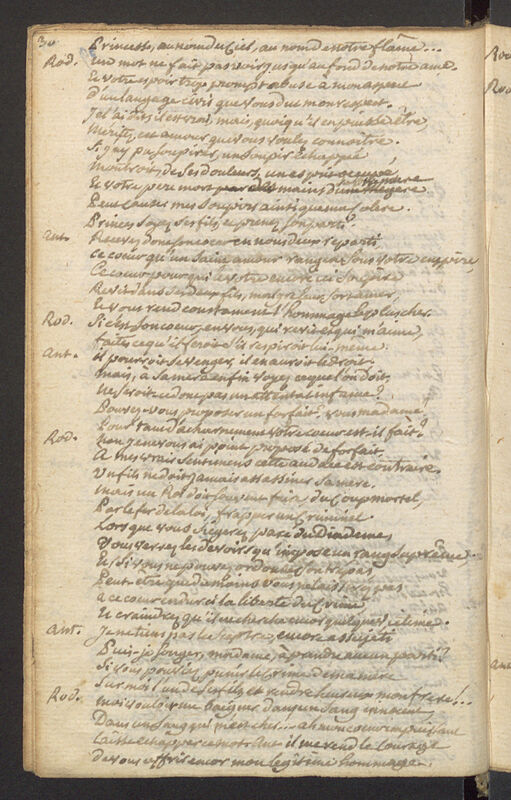 30
Princesse, au nom du Ciel, au nom de notre flâme...
Rod. Un mot ne fait pas voir jusqu'au fond de notre ame.
Et votre espoir trop prompt abuse à mon aspect
D'un langage civil que vous dus mon respect.
Je l'ai dit, il est vrai, mais, quoiqu'il en puisse être,
Méritez cet amour que vous voulez connoitre.
Si j'ay pu soupirer, un soupir échappé,
Montroit de ses douleurs,
Et votre pere mort par des mains d'une megere
Peut causer mes soupirs ainsi que ma colere.
Princes, soyez ses fils, et prenez son parti.
Ant. Recevez donc son coeur en nous deux reparti
Ce coeur qu'un saint amour rangea sous votre empire,
Ce coeur pour qui le votre encore ici soupire
Revit dans ses deux fils, malgré leur sort amer,
Et vous rend constament l'hommage le plus cher.
Rod. Si c'est son coeur, en vous, qui revit et qui m'aime,
Faites ce qu'il feroit s'il respiroit lui-même.
Ant. Il pourroit se venger, il en auroit le droit.
Mais, à sa mere enfin voyez ce que l'on doit.
Ne seroit-ce donc pas un attentat infame?
Pouvez-vous proposer un forfait, vous madame?
Pour tant d'acharnement votre coeur est-il fait?
Rod. Non je ne vous ai point proposé de forfait.
A mes vrais sentimens cette audace est contraire.
Un fils ne doit jamais assassiner sa mere.
Mais un Roi doit souvent faire, du coup mortel,
Par le fer de la loi, frapper un Criminel.
Lorsque vous siégerez paré du Diademe,
Vous verrez les devoirs qu'impose un rang suprême.
Et si vous ne pouvez ordonner son trépas
Peut-être que du moins vous ne laisserez pas
A ce coeur endurci la liberté du Crime,
Et craindrez qu'il ne cherche encor quelque victime.
Ant. Je ne tiens pas le sceptre, encore assujeti
Puis-je songer, madame, à prendre aucun parti?
Si vous pouvez punir le crime de ma mere
Sur moi l'un de ses fils, et rendre heureux mon frere!..
Rod. Moi vouloir me baigner dans un sang innocent
Dans un sang qui m'est cher... ah mon coeur impuissant
Laisse échapper ce mot. Ant. il me rend le courage
De vous offrir encor mon légitime hommage.